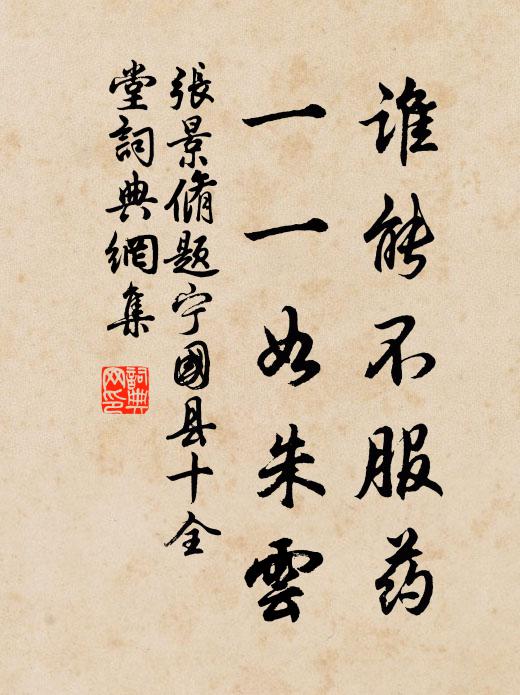 谁能不服药
一一如朱雲
張景脩题宁國县十全
堂詞典網集
詞典
网印